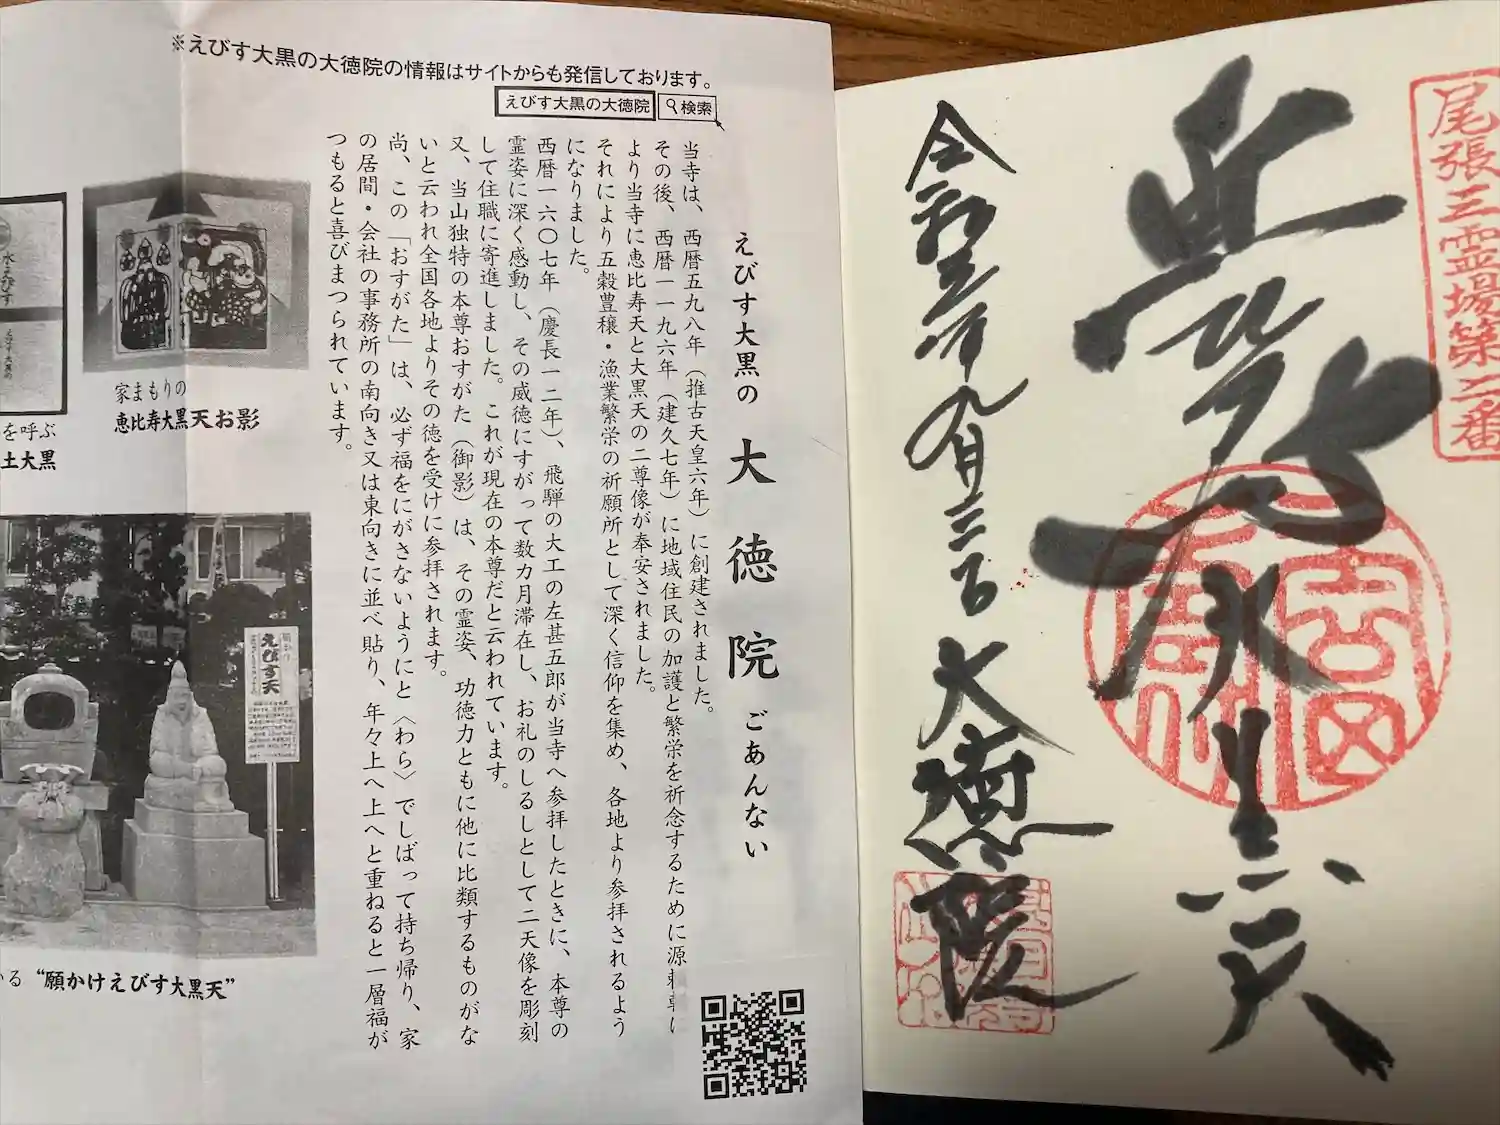 ※えびす大黒の大徳院の情報はサイトからも発信しております。
えびす大黒の大徳院
検索
えびす大黒の 大徳院 ごあんない
当寺は、西暦五九八年(推古天皇六年)に創建されました。
その後、西暦一一九六年(建久七年)に地域住民の加護と繁栄を祈念するために源頼朝
より当寺に恵比寿天と大黒天の二尊像が奉安されました。
それにより五穀豊穣・漁業繁栄の祈願所として深く信仰を集め、各地より参拝されるよう
になりました。
西暦一六〇七年(慶長一二年)、飛騨の大工の左甚五郎が当寺へ参拝したときに、本尊の
霊姿に深く感動し、その威徳にすがって数カ月滞在し、お札のしるしとして二天像を彫刻
して住職に寄進しました。これが現在の本尊だと云われています。
又、当山独特の本尊おすがた(御影)は、その霊姿、功徳力ともに他に比類するものがな
いと云われ全国各地よりその徳を受けに参拝されます。
尚、この「おすがた」は、必ず福をにがさないようにと〈わら〉でしばって持ち帰り、家
の居間・会社の事務所の南向き又は東向きに並べ貼り、年々上へ上へと重ねると一層福が
つもると喜びまつられています。
家まもりの
恵比寿大黒天お影
を呼ぶ
土大黒
えびす天
かる "願かけえびす大黒天"
尾張三霊場第二番
大徳院